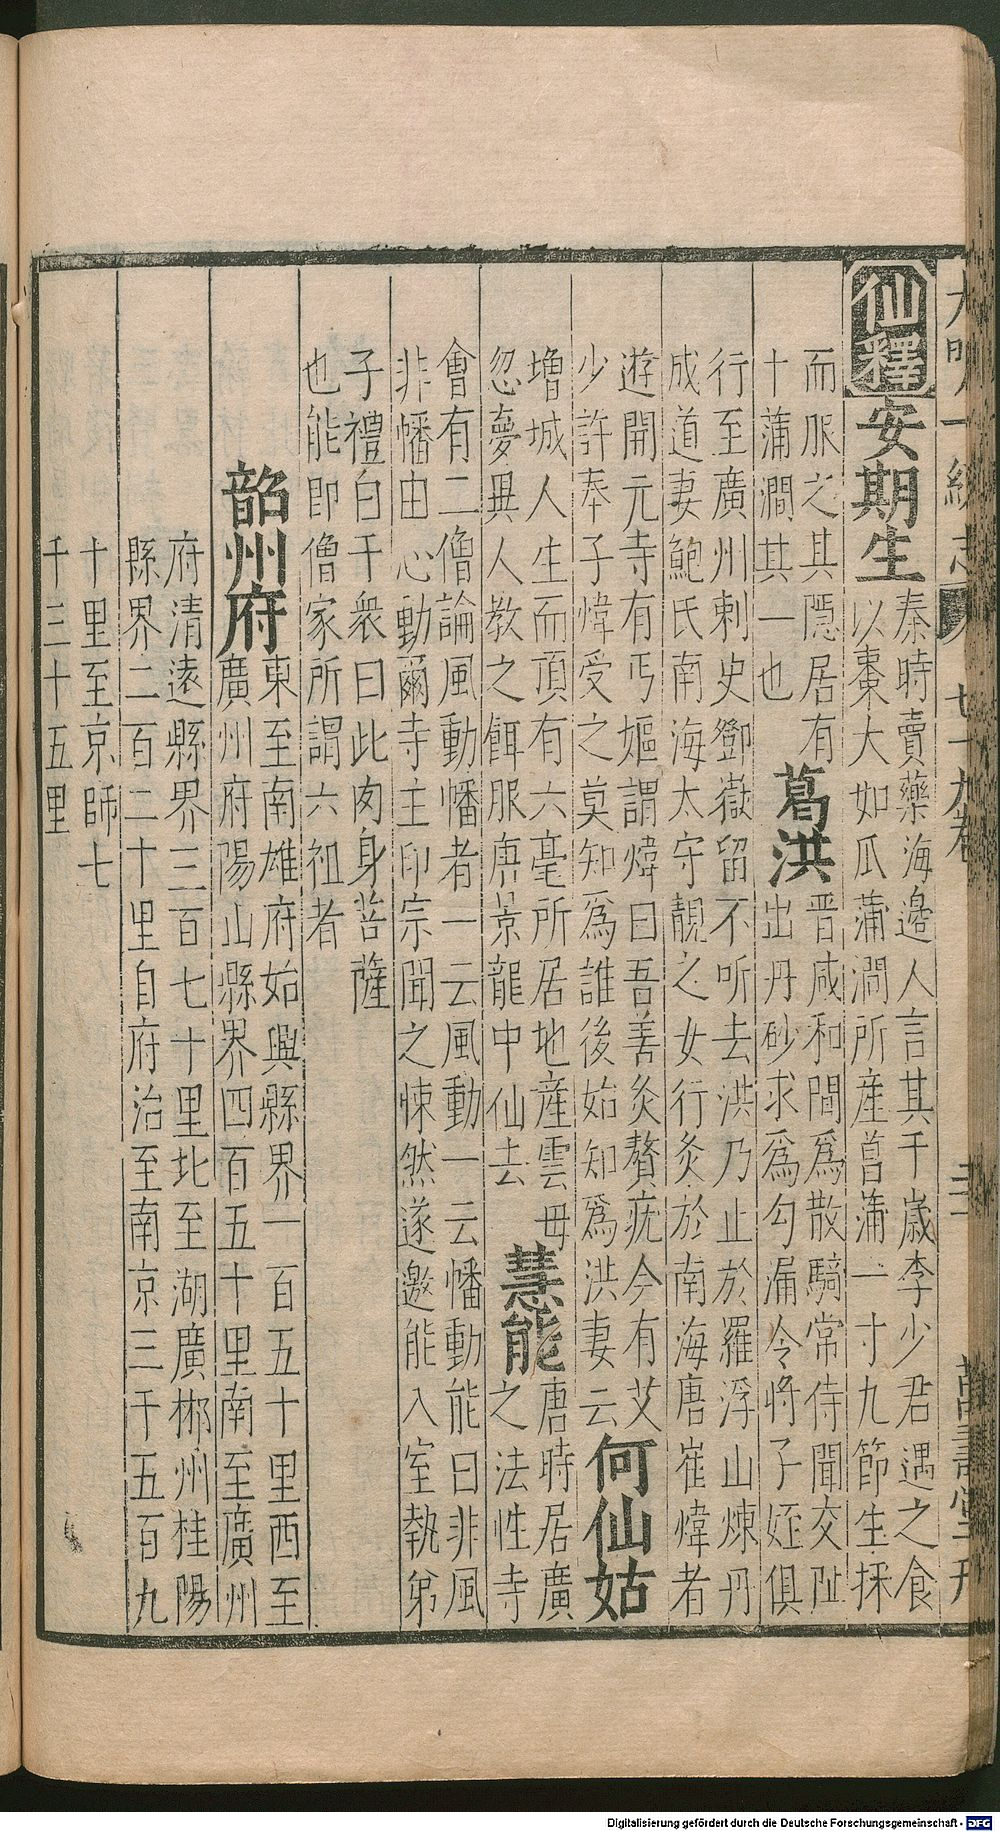 大明一統志 七十九卷 萬壽堂刊
仙釋 安期生 秦時賣藥海邊人言其千歲李少君遇之食
以棗大如瓜蒲澗所産菖蒲一寸九節生採
而服之其隠居有
十蒲澗其一也
葛洪 晋咸和間爲散騎常侍聞交趾
出丹砂求爲勾漏令将子姪俱
行至廣州刺史鄧嶽留不听去洪乃止於羅浮山煉丹
成道妻鮑氏南海太守靚之女行灸於南海唐崔煒者
遊開元寺有丐嫗謂煒曰吾善灸贅疣今有艾
少許奉子煒受之莫知爲誰後始知爲洪妻云
何仙姑
増城人生而頂有六毫所居地産雲母
忽夢異人教之餌服唐景龍中仙去
慧能 唐時居廣
之法性寺
會有二僧論風動幡者一云風動一云幡動能曰非風
非幡由心動爾寺主印宗聞之悚然遂邀能入室執弟
子禮白千衆曰此肉身菩薩
也能即僧家所謂六祖者
韶州府 東至南雄府始興縣界一百五十里西至
廣州府陽山縣界四百五十里南至廣州
府清遠縣界三百七十里北至湖廣郴州桂陽
縣界二百二十里自府治至南京三千五百九
十里至京師七
千三十五里
Digitalisierung gefördert durch die Deutsche Forschungsgemeinschaft - DFG